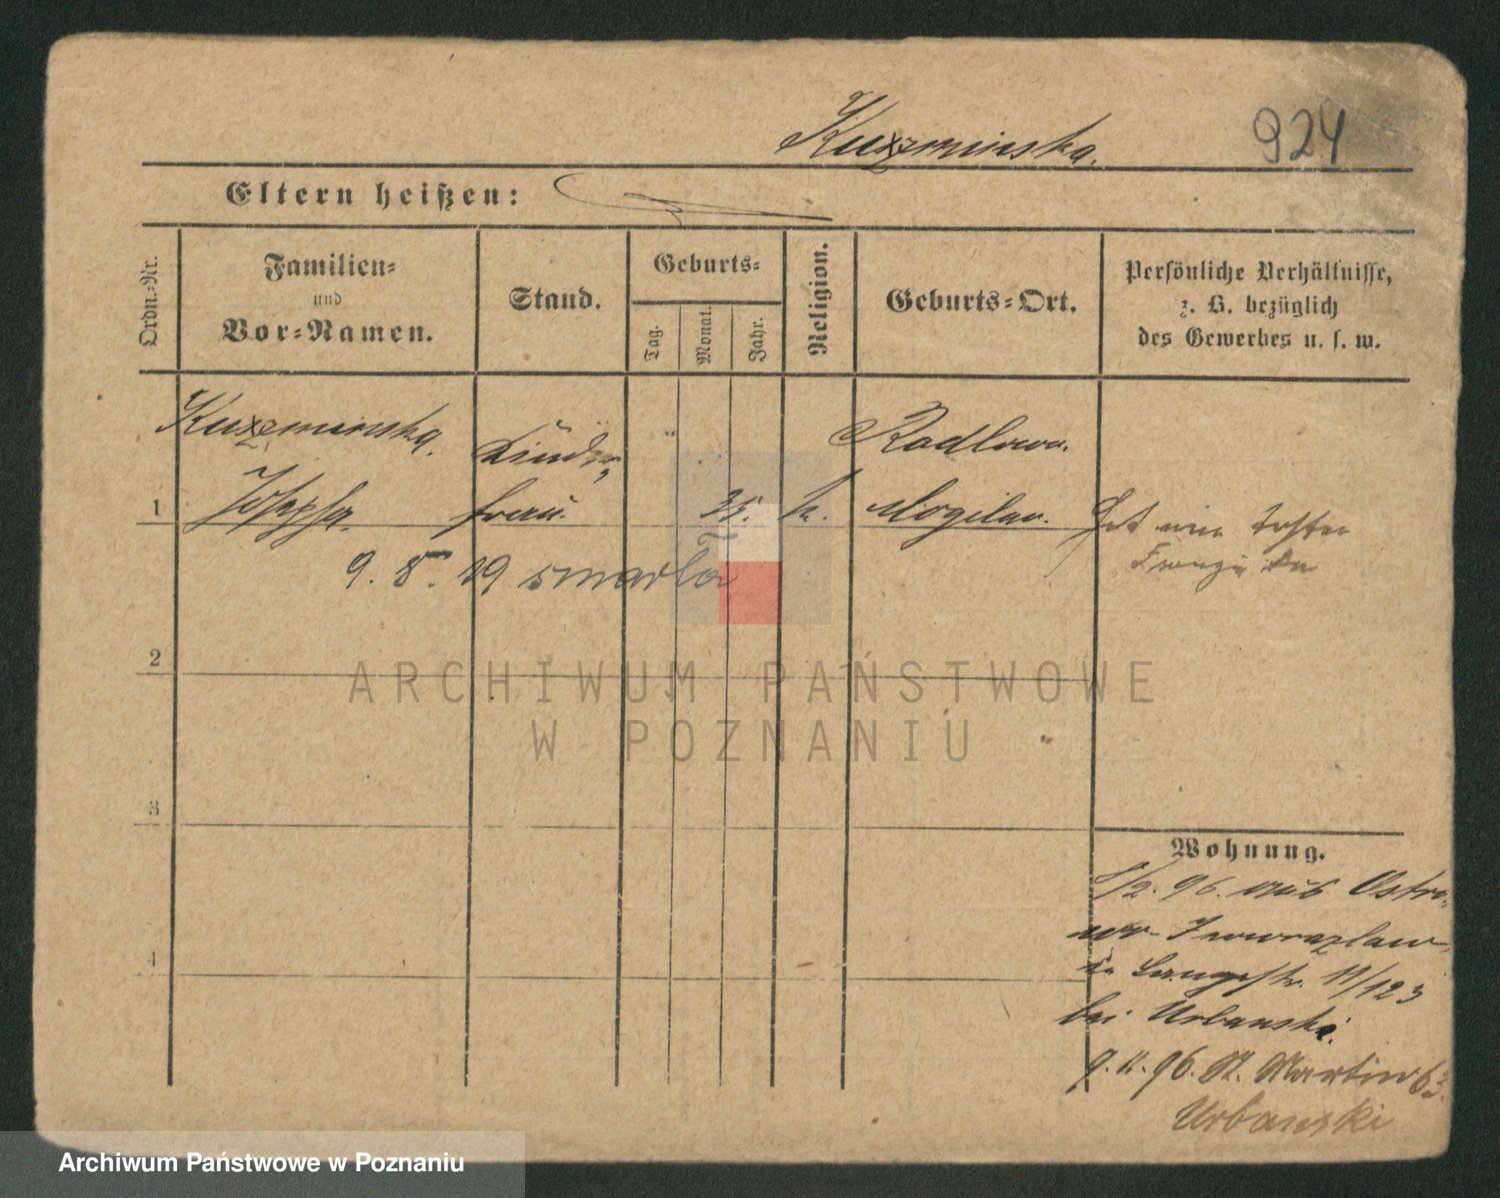 Kuzminska.
924
Eltern heißen:
Ordn.-Nr.
Familien-
und
Vor-Namen.
Stand.
Geburts-
Tag.
Monat.
Jahr.
Religion.
Geburts-Ort.
Persönliche Verhältnisse,
z. B. bezüglich
des Gewerbes u. s. w.
Kuzminska, Kinder Radlowo.
1 Josepha. frau. 35. k. Mogilno. Hat eine Tochter
9. 8. 19 zmarła
2
3
4
Wohnung.
5/2. 96. aus Ostro-
wo Inowrazlaw
Langestr. 11/123
bei Urbanski.
9. 11. 96. St. Martin 63.
Urbanski
ARCHIWUM PAŃSTWOWE
W POZNANIU
Archiwum Państwowe w Poznaniu